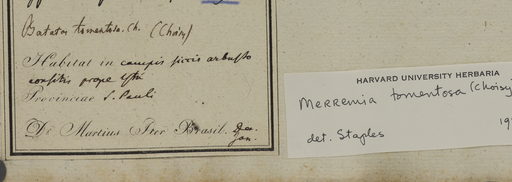 Batatas tomentosa. Ch. (Choisy)
Habitat in campis siccis arbusto
consitis prope Ypa
Provinciae S. Pauli
De Martius Iter Brasil. Dec.
Jan.
HARVARD UNIVERSITY HERBARIA
MERREMIA tomentosa (Choisy)
det. Staples
19